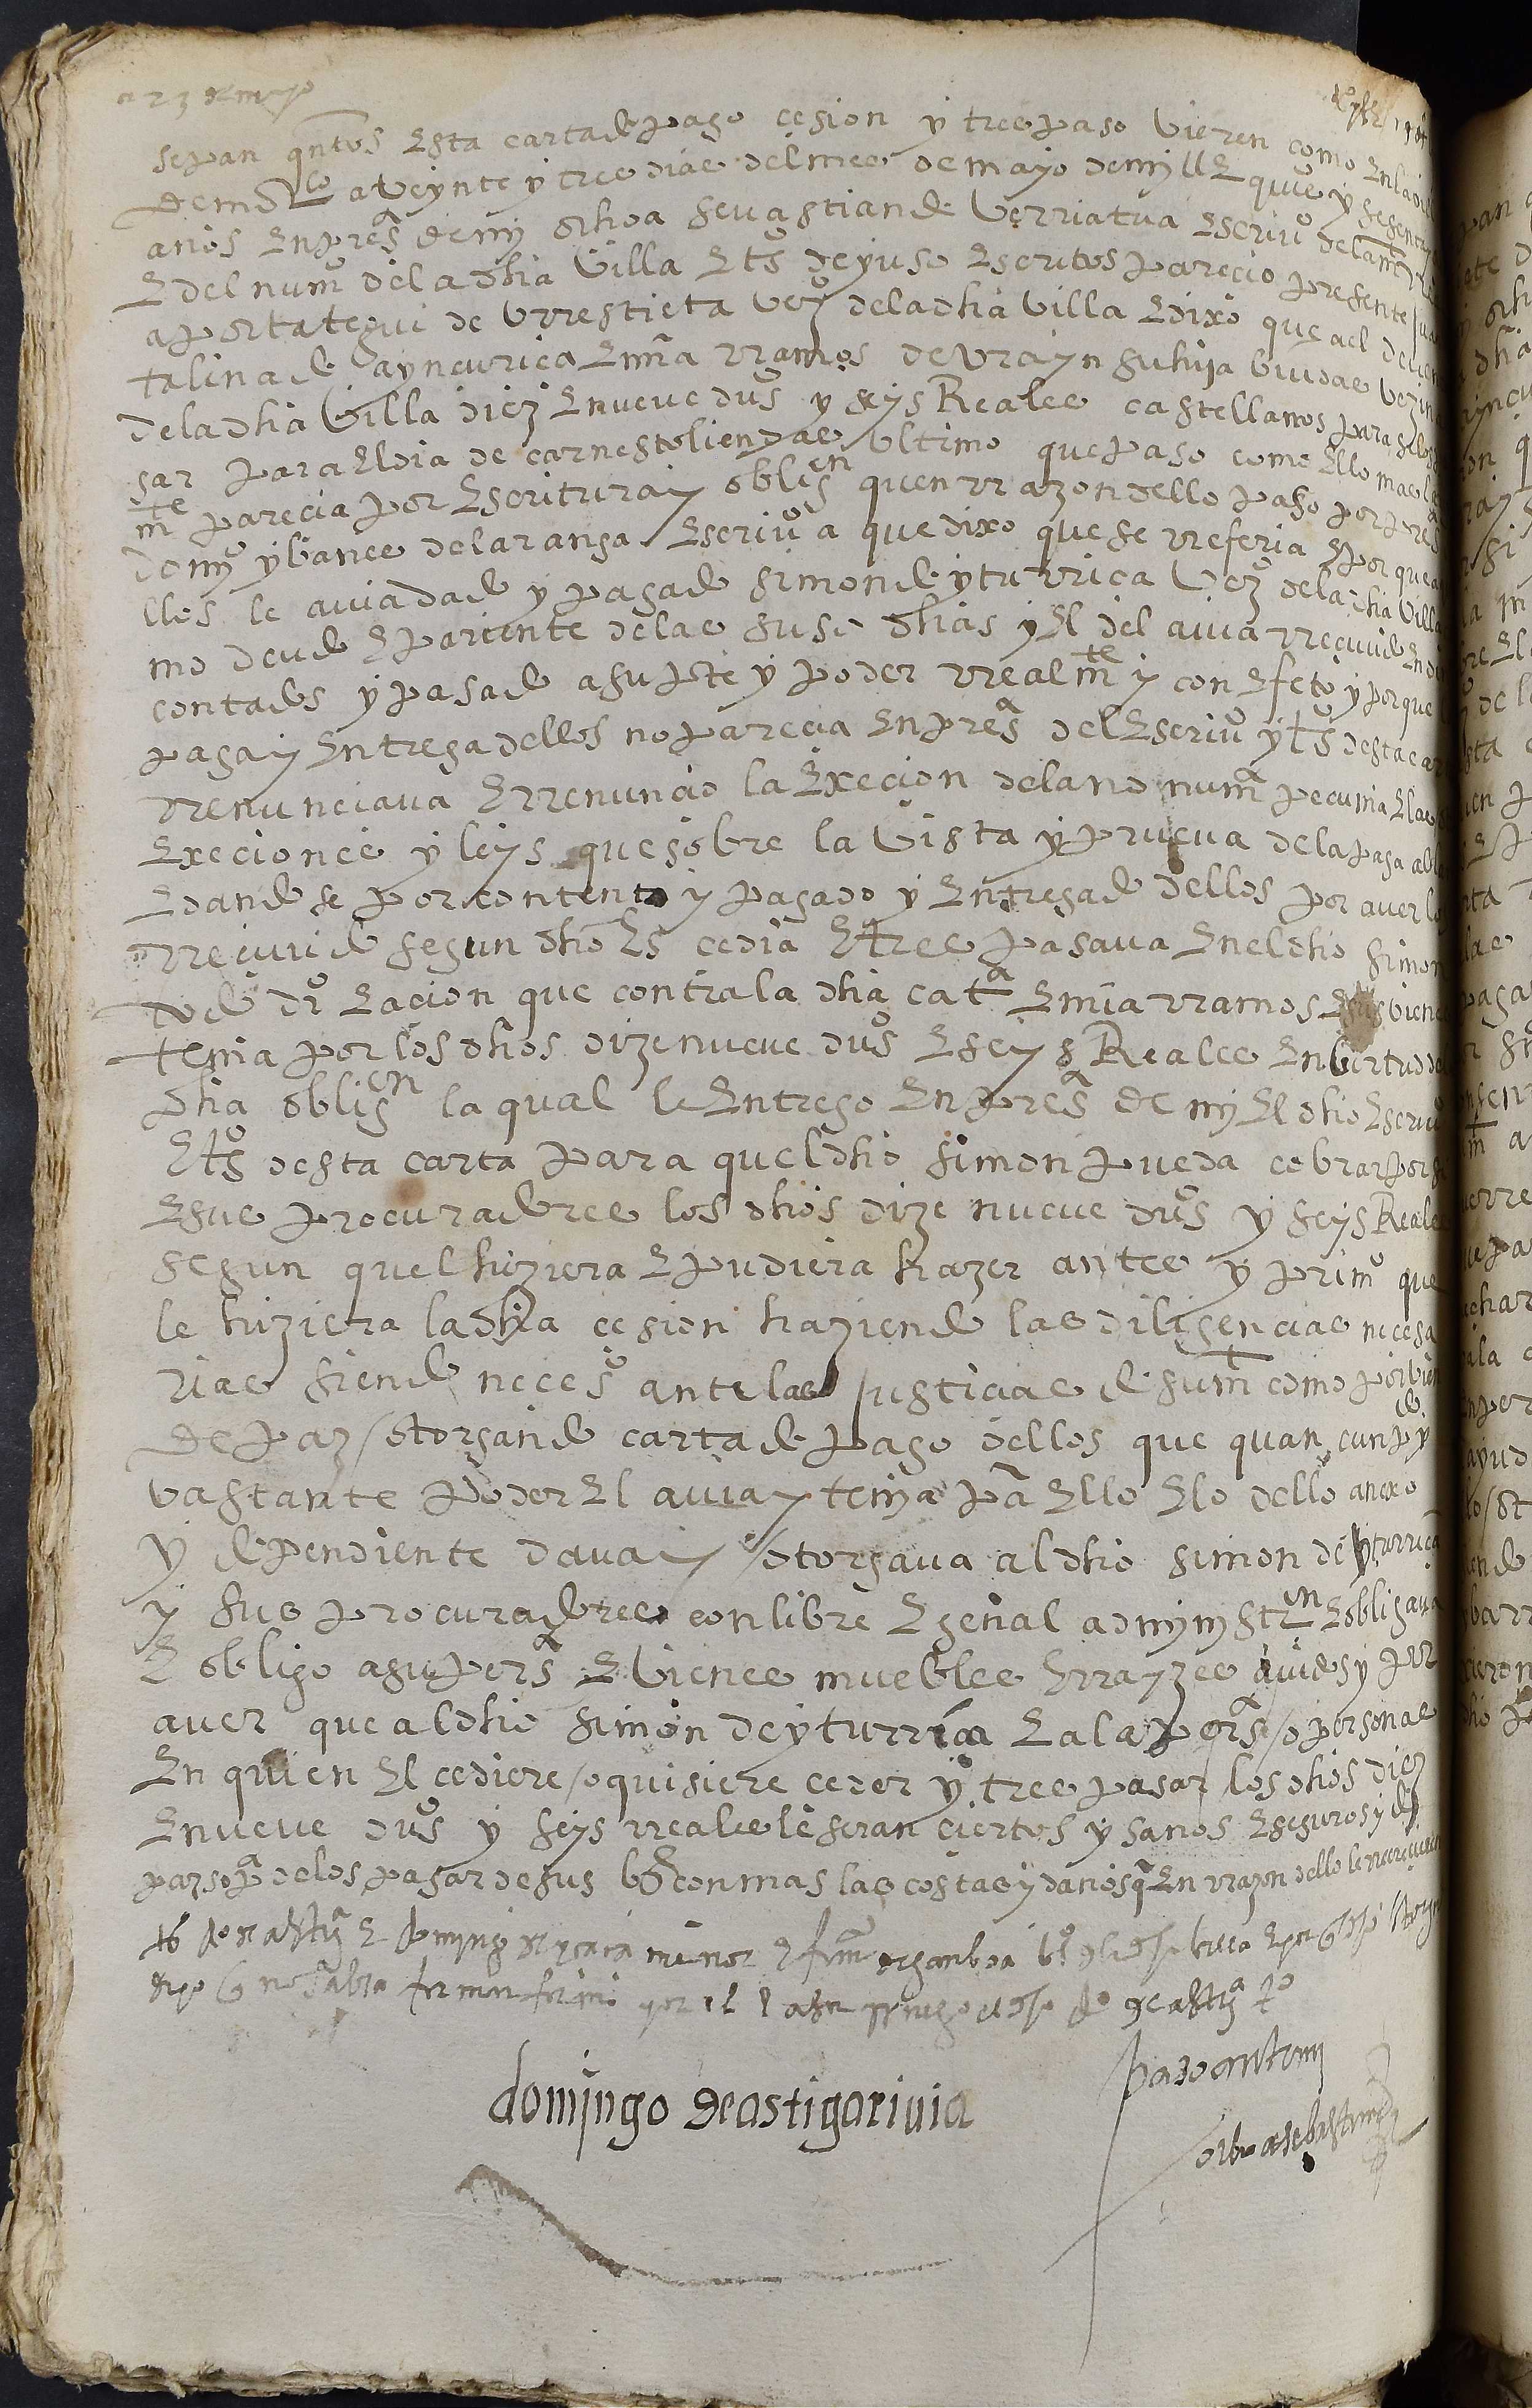 a 23 de mayo
sepan qntos Esta carta de pago cesion y trespaso Vieren como En la villa
de mo a Veynte y tres dias del mes de mayo de mill E quis y sesenta
años En presª de my Ochoa sevastian de Verriatua Escriuº de la md Rl
E del numº de la dha Villa E tºs de yuso Escritos parecio presente
aportategui de Vrrestieta Vezº de la dha Villa E dixo que a el devian
talina de aynçuriça E mª rramos de Vrayn su hija biudas Vezin
de la dha Villa diez E nueve duºs y seys Reales castellanos para selos
gar para El dia de carnestoliendas Vltimo que paso como Ello mas la
mte parecia por Escritura y obligen quen rrazon dello paso por pres
domyº ybanes de laranga Escriuº a que dixo que se rreferia E por que a
llos le avia dado y pagado simon de yturriça Vezº de la dha Villa
mo devdo E pariente de las suso dhas y El del avia rreçiuido En di
contados y pasado a su pte y poder rrealmte y con Efeto y por que
paga y Entrega dellos no parecia En presª del Escriuº y tºs desta car
rrenunciava E rrenuncio la Execion de la no numª pecunia E las
Execiones y leys que sobre la Vista y prueva de la paga abla
E dandose por contento y pagado y Entregado dellos por averlos
rreçiuido segun dho Es cedia E trespasava En el dho simon
todo drº E acion que contra la dha catª E mia rramos E sus vienes
tenia por los dhos dizenueve duºs E seys Reales En virtud de
dha obligen la qual le Entrego En presª de my El dho Escriuº
E tºs desta carta para quel dho simon pueda cobrar por si
E sus procuradores los dhos dize nueve duºs y seys Reales
segun quel hiziera E pudiera hazer antes y primº que
le hiziera la dha cesion haziendo las diligencias necesa
rias siendo necesº ante las justicias de su md como por via
de paz / otorgando carta de pago dellos que quan cunpdo y
vastante poder El avia y tenia pª Ello E lo dello anexo
y dependiente dava y otorgava al dho simon de yturriça
y sus procuradores con libre E genal admynystren E obligava
E obligo a su persª E vienes muebles E rrayzes avidos y por
aver que al dho simon de yturriça E a la persª / o personas
En quien El cediere / o quisiere ceder y trespasar los dhos diez
E nueve duºs y seys rreales le seran ciertos y sanos E seguros y de
paz so pª de los pagar de sus bs con mas las costas y daños q En rrazon dello le rrecreciesen
domingo de astigarivia
paso ante my